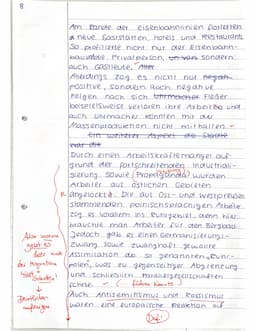 8
Am Rande der Eisenbahnlinien florierten
neue Gaststätten, Hotels und Restaurants.
So profitierte nicht nur der Eisenbahn-
Privatperson, sondern
auch Gastleute,
Allerdings zog es nicht nur
positive, sondern auch negative
Folgen nach sich
beispielsweise verloren ihre Arbeit und
auch Uhrmacher konnten mit der
Massenproduktion nicht mithalten.
Ein weiterer Aspekt
Durch einen Arbeitskräftemangel auf-
grund der fortschreitenden Industriali-
sierung sowie (Propaganda) wurden
Arbeiter aus östlichen Gebieten
angelockt. Der aus Ost- und Westpreußen
stammenden polnischsprachigen Arbeiter
zog es vor allem ins Ruhrgebiet, denn hier
brauchte man Arbeiter für den Bergbau.
Jedoch gab es einen Germanisierungs-
zwang sowie zwanghaft gewollte
Assimilation der so genannten „Ruhr-
polen“, was zu gegenseitiger Abgrenzung
und schließlich Parallelgesellschaften
Auch Antisemitismus und Rassismus
waren eine europäische Reaktion auf